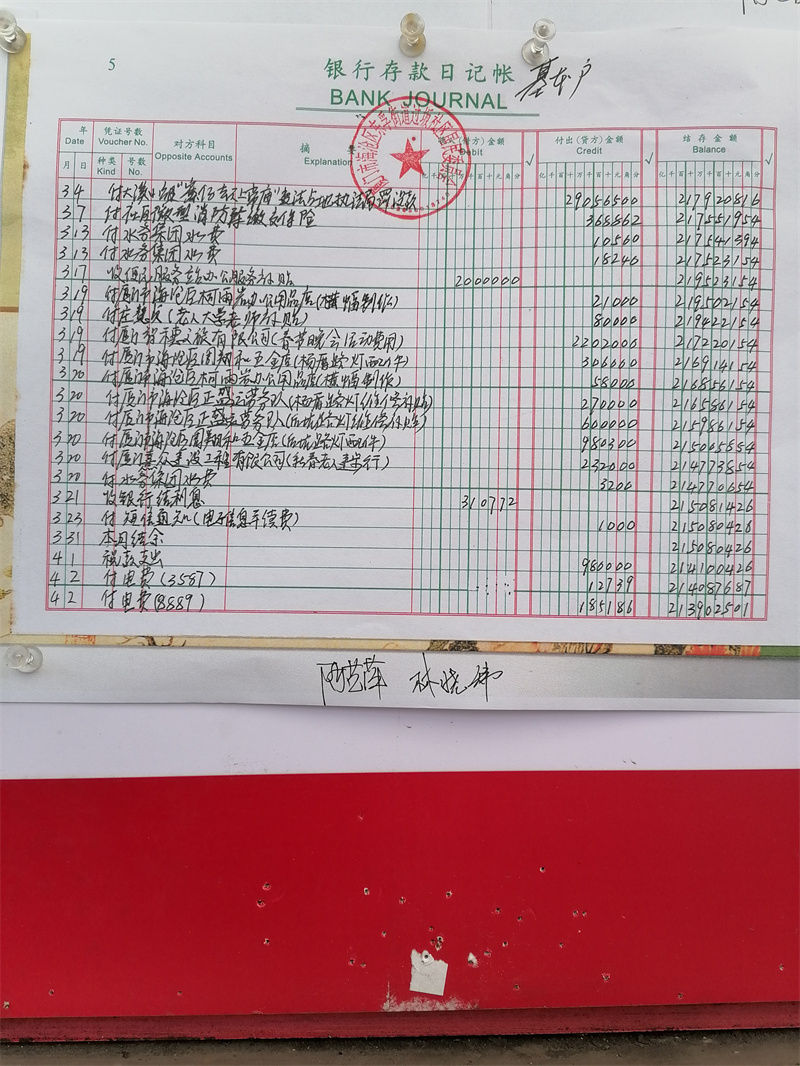 5
银行存款日记帐 基本户
BANK JOURNAL
年 凭证号数 对方科目 摘 (借方)金额 付出(贷方)金额 结存金额
Date Voucher No. Opposite Accounts Explanation Debit Credit Balance
月 日 种类 号数
Kind No.
亿千百十万千百十元角分 √ 亿千百十万千百十元角分 √ 亿千百十万千百十元角分 √
3 4 付 29056500 217920816
3 7 付 保险 368862 217551954
3 13 付水务集团水费 10560 217541394
3 13 付水务集团水费 18240 217523154
3 17 收便民服务站办公服务补贴 2000000 219523154
3 19 付厦门市海沧区柯雨岩办公用品店(横幅制作) 21000 219502154
3 19 付庄 (老人大学老师补贴) 80000 219422154
3 19 付厦门智穗文旅有限公司(春节晚会活动费用) 2202000 217220154
3 19 付厦门市海沧区周翔和五金店(杨厝路灯配件) 306000 216914154
3 20 付厦门市海沧区柯雨岩办公用品店(横幅制作) 58000 216856154
3 20 付厦门市海沧区正盛 劳务队(杨厝路灯维修补贴) 270000 216586154
3 20 付厦门市海沧区正盛 劳务队( 路灯维修补贴) 600000 215986154
3 20 付厦门市海沧区周翔和五金店( 路灯配件) 980300 215005854
3 20 付厦门 众建设工程有限公司( ) 232000 214773854
3 20 付水务集团水费 3200 214770654
3 21 收银行结利息 310772 215081426
3 23 付短信通知(电子信息手续费) 1000 215080426
3 31 本月结余 215080426
4 1 税款支出 980000 214100426
4 2 付电费(3587) 12739 214087687
4 2 付电费(8889) 185186 213902501
林晓